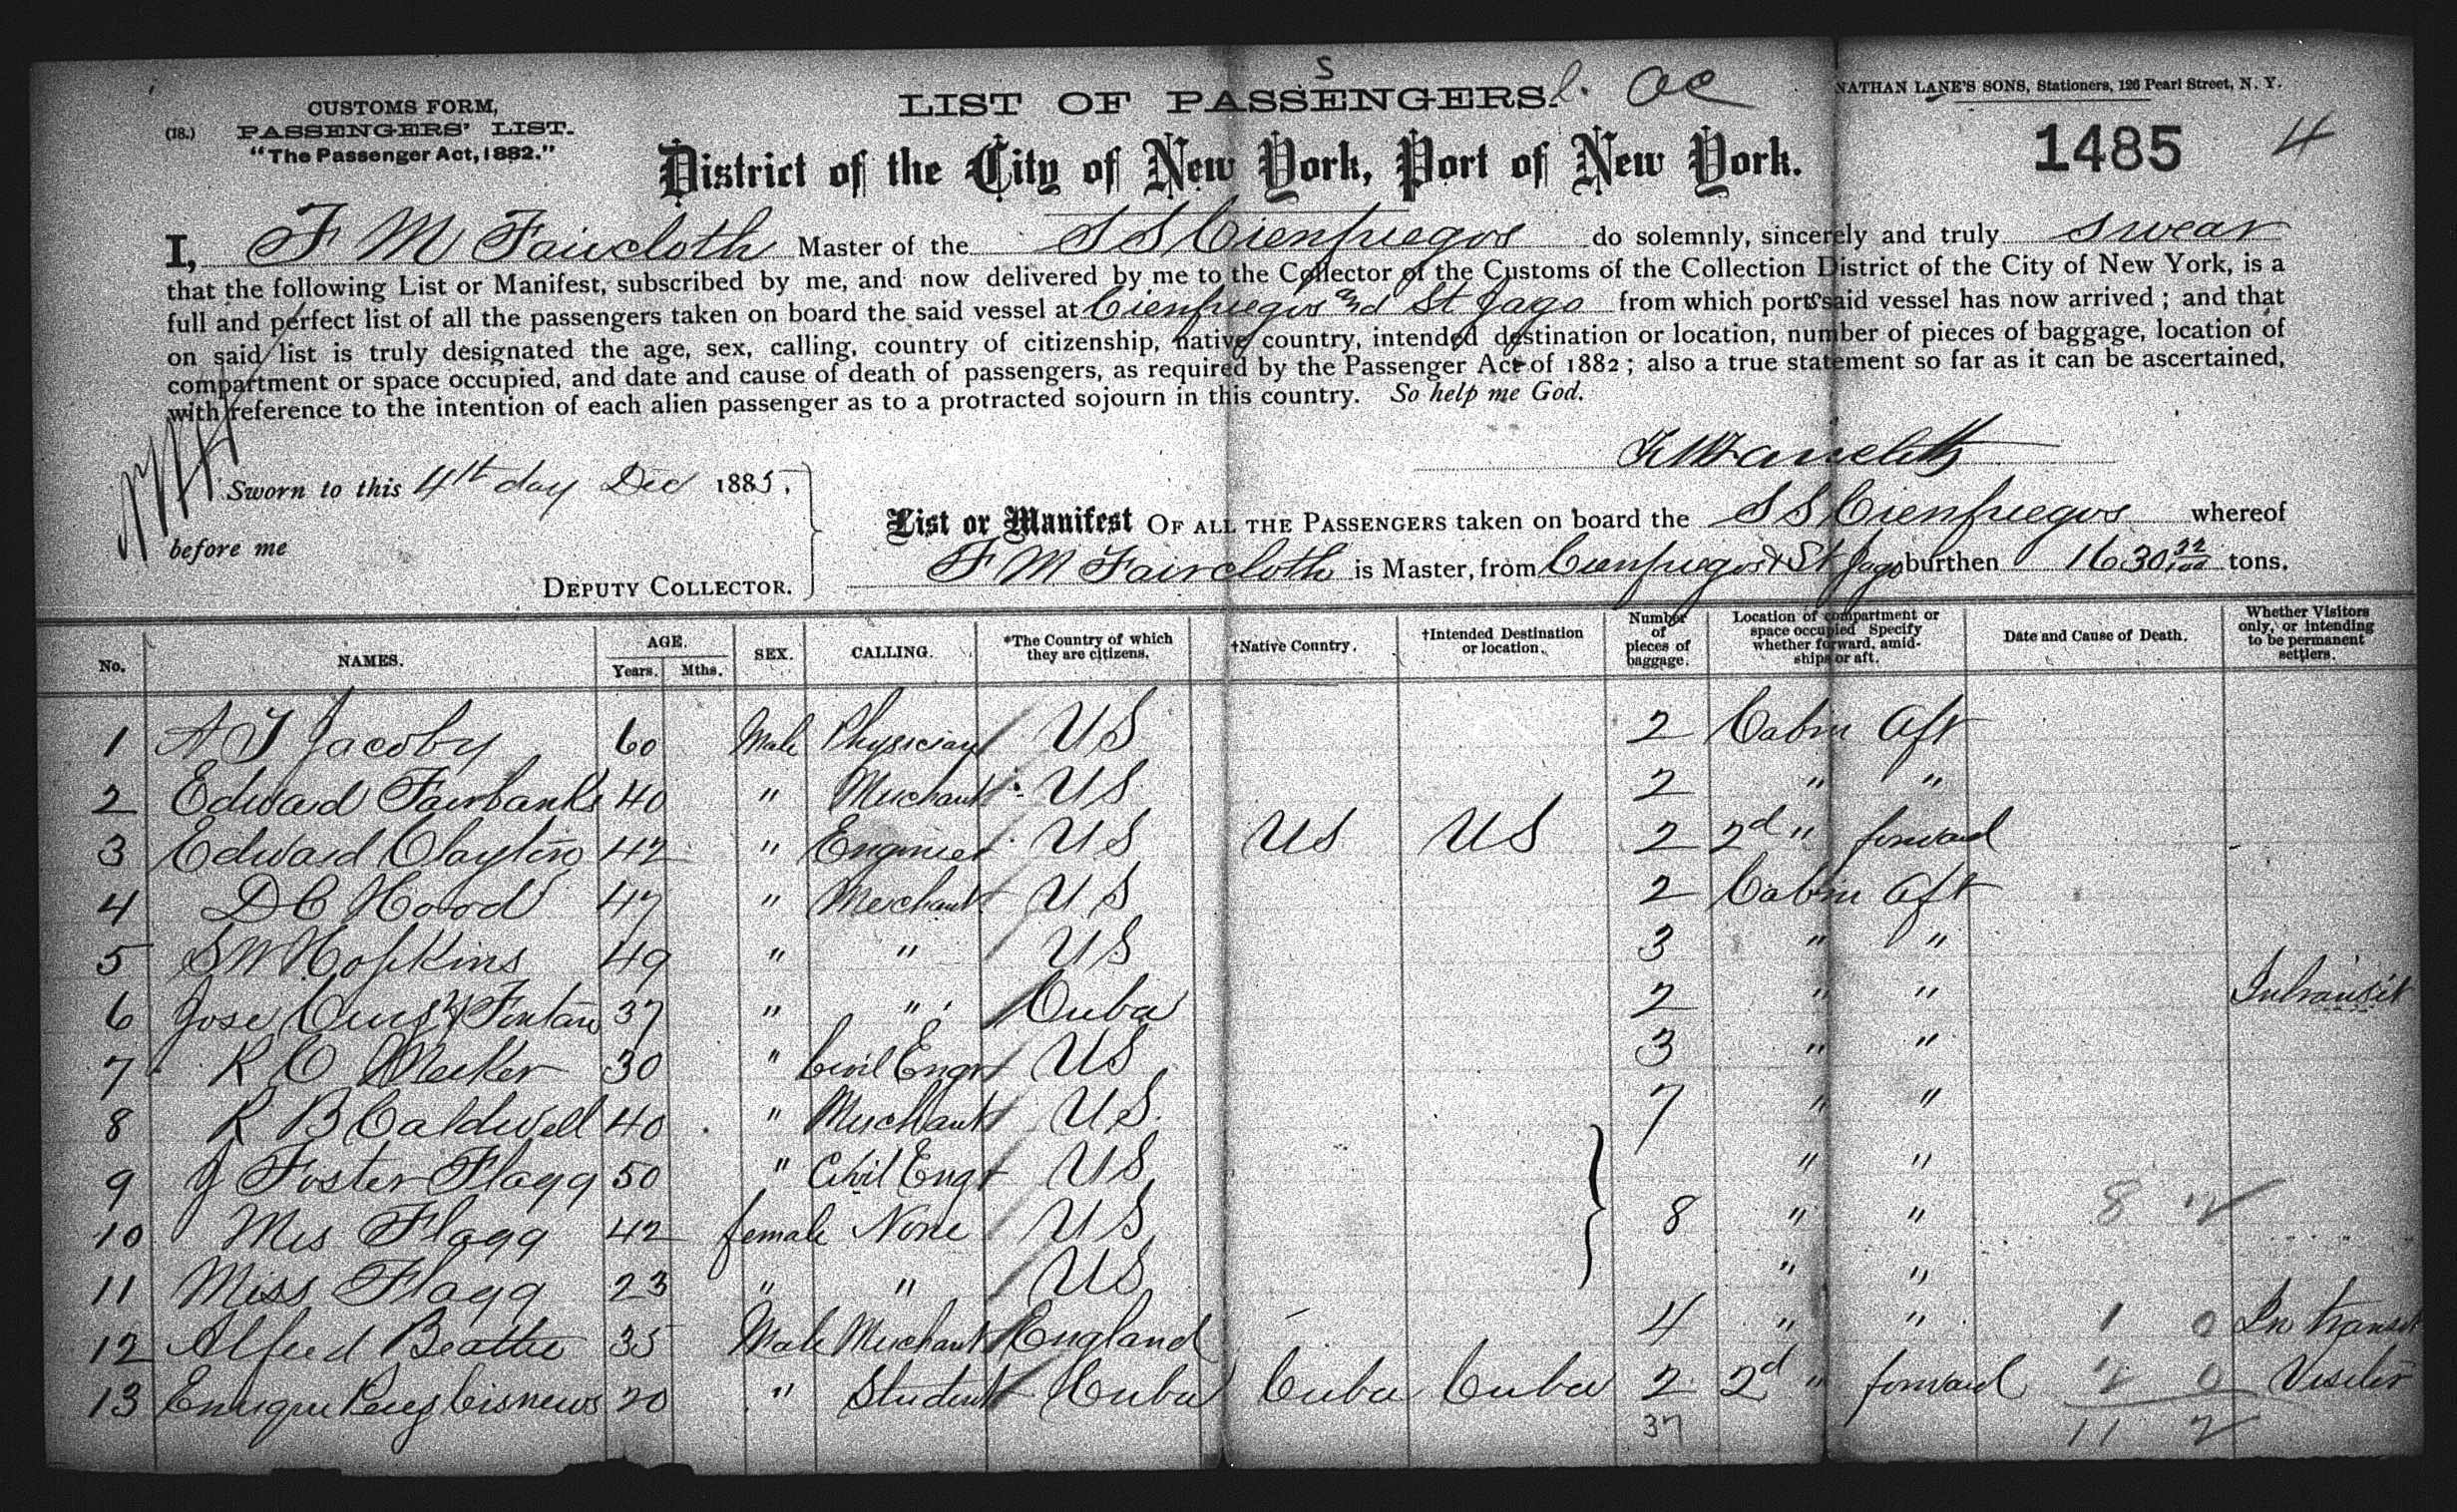 S
CUSTOMS FORM,
(18.) PASSENGERS' LIST.
"The Passenger Act, 1882."
LIST OF PASSENGERS.
NATHAN LANE'S SONS, Stationers, 126 Pearl Street, N. Y.
1485 4
District of the City of New York, Port of New York.
I, F M Faircloth Master of the S S Cienfuegos do solemnly, sincerely and truly swear
that the following List or Manifest, subscribed by me, and now delivered by me to the Collector of the Customs of the Collection District of the City of New York, is a
full and perfect list of all the passengers taken on board the said vessel at Cienfuegos and St Jago from which ports said vessel has now arrived ; and that
on said list is truly designated the age, sex, calling, country of citizenship, native country, intended destination or location, number of pieces of baggage, location of
compartment or space occupied, and date and cause of death of passengers, as required by the Passenger Act of 1882 ; also a true statement so far as it can be ascertained,
with reference to the intention of each alien passenger as to a protracted sojourn in this country. So help me God.
F M Faircloth
Sworn to this 4th day Dec 1885,
before me
DEPUTY COLLECTOR.
List or Manifest OF ALL THE PASSENGERS taken on board the S S Cienfuegos whereof
F M Faircloth is Master, from Cienfuegos & St Jago burthen 1630 32/100 tons.
No. NAMES. AGE. Years. Mths. SEX. CALLING. *The Country of which they are citizens. †Native Country. †Intended Destination or location. Number of pieces of baggage. Location of compartment or space occupied Specify whether forward, amidships or aft. Date and Cause of Death. Whether Visitors only, or intending to be permanent settlers.
1 A J Jacoby 60 Male Physician US 2 Cabin Aft
2 Edward Fairbanks 40 " Merchant US 2 " "
3 Edward Clayton 42 " Engineer US US US 2 2d " forward
4 D C Hood 47 " Merchant US 2 Cabin Aft
5 S W Hopkins 49 " " US 3 " "
6 Jose Fontan 37 " " Cuba 2 " " Intransit
7 R O Meeker 30 " Civil Engr US 3 " "
8 R B Caldwell 40 " Merchant US 7 " "
9 J Foster Flagg 50 " Civil Engr US " "
10 Mrs Flagg 42 female None US 8 " " 8
11 Miss Flagg 23 " " US " "
12 Alfred Beattie 35 Male Merchant England 4 " " 1 0 In transit
13 Enrique Perez Cisneros 20 " Student Cuba Cuba Cuba 2 2d " forward 2 0 Visitor
37 11 2